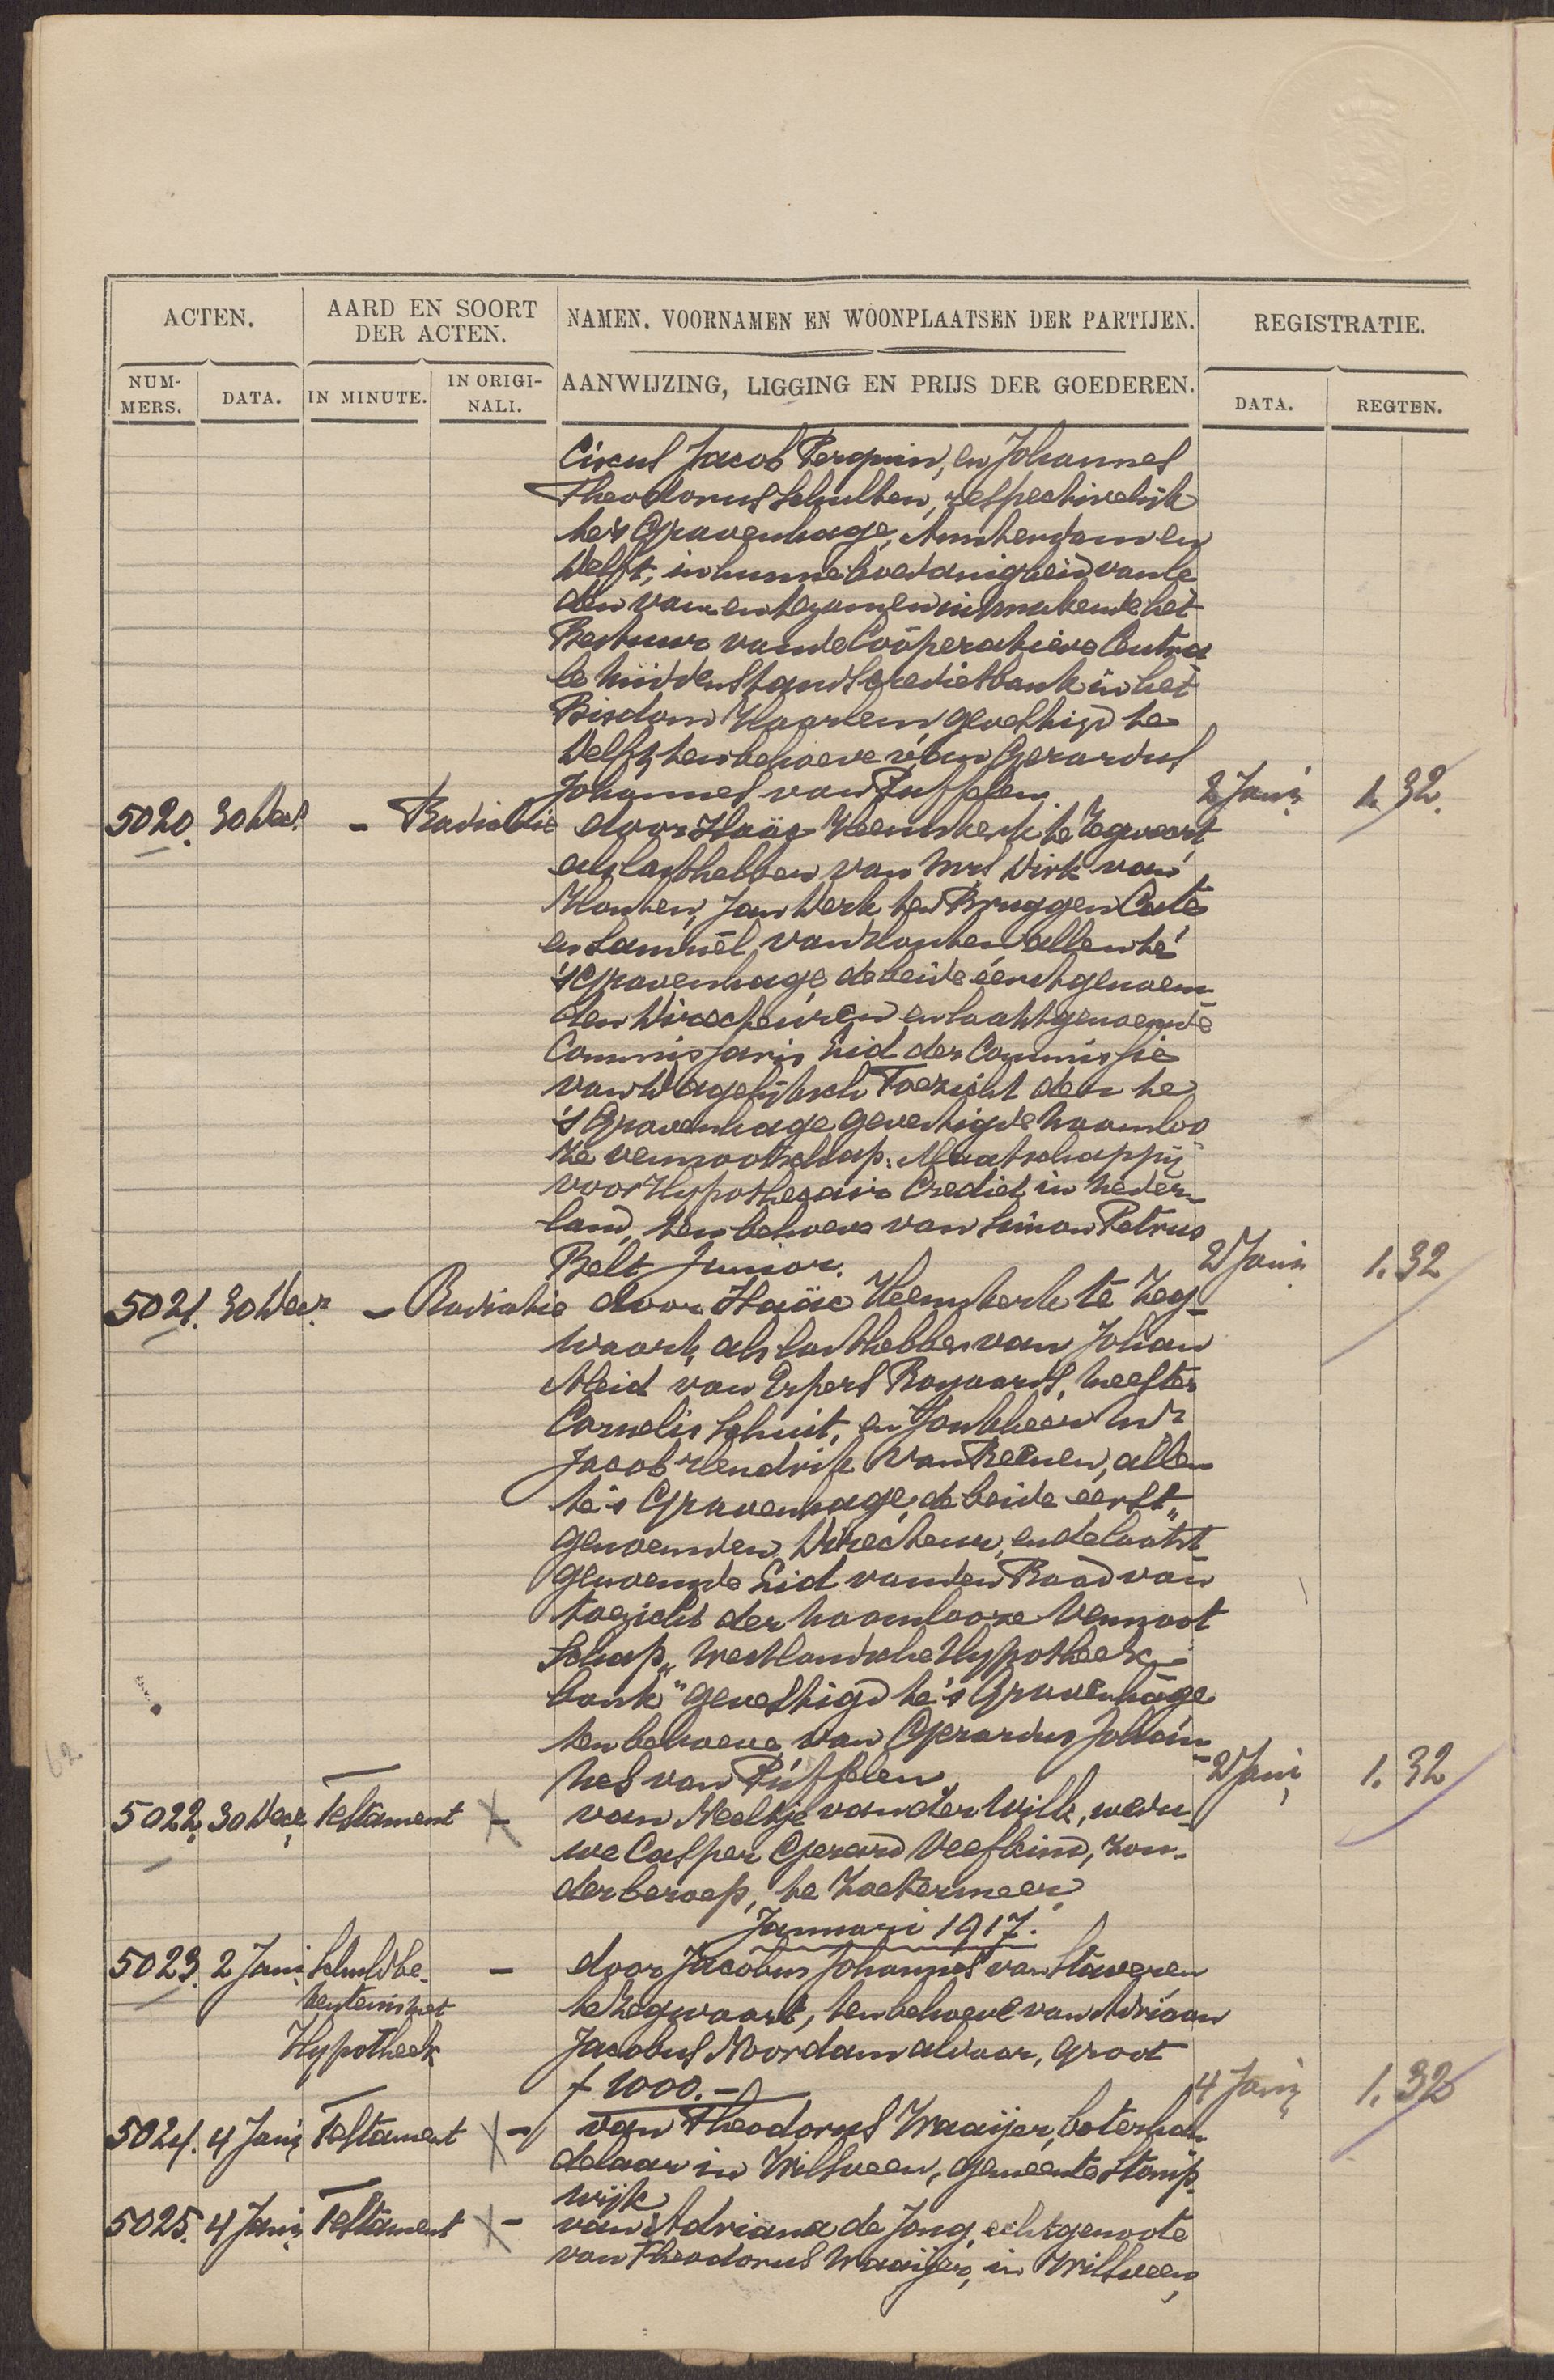 ACTEN.
AARD EN SOORT
DER ACTEN.
NAMEN, VOORNAMEN EN WOONPLAATSEN DER PARTIJEN.
REGISTRATIE.
NUM-
MERS.
DATA.
IN MINUTE.
IN ORIGI-
NALI.
AANWIJZING, LIGGING EN PRIJS DER GOEDEREN.
DATA.
REGTEN.
Jacob Perquin, en Johannes
Theodorus Schulten, respectivelijk
te 's Gravenhage, Amsterdam en
Delft, in hunne hoedanigheid van le
den van en tezamen uitmakende het
Bestuur van de Coöperatieve Centra
le Middenstandscredietbank in het
Bisdom Haarlem, gevestigd te
Delft, ten behoeve van Gerardus
Johannes van Ruffelen. 2 Jan: 1.32.
5020. 30 Dec: - Radiatie door Isaäc Heemskerk te Zegwaart
als lasthebber van Mrs Dirk van
Houten, Jan Derk ten Bruggen Cate
en Samuël van Houten allen te
's Gravenhage, de beide eerstgenoem
den Directeuren en laatstgenoemde
Commissaris Lid der Commissie
van Dagelijksch Toezicht der te
's Gravenhage gevestigde naamloo
ze vennootschap: Maatschappij
voor Hypothecair Crediet in Neder-
land, ten behoeve van Simon Petrus
Belt Junior. 2 Jan: 1.32
5021. 30 Dec: - Radiatie door Isaäc Heemskerk te Zeg-
waart, als lasthebber van Johan
Meid van Erpers Royaards, Meester
Cornelis Schuit, en Jonkheer Mr
Jacob Hendrik van Reenen, allen
te 's Gravenhage, de beide eerst„
genoemden Directeur, en de laatst-
genoemde Lid van den Raad van
toezicht der naamlooze Vennoot
schap „Westlandsche Hypotheek-
bank" gevestigd te 's Gravenhage
ten behoeve van Gerardus Johan-
nes van Ruffelen. 2 Jan: 1.32
5022. 30 Dec: Testament - van Neeltje van der Wilk, wedu-
we Casper Gerard Veefkind, zon-
der beroep, te Zoetermeer.
Januari 1917.
5023. 2 Jan: Schuldbe- - door Jacobus Johannes van Staveren
kentenis met te Zegwaart, ten behoeve van Adriaan
Hypotheek Jacobus Noordam aldaar, groot
f 1000.- 4 Jan: 1.32
5024. 4 Jan: Testament - van Theodorus Waaijer, boterhan
delaar in Wilsveen, gemeente Stomp-
wijk
5025. 4 Jan: Testament - van Adriana de Jong echtgenoote
van Theodorus Waaijer, in Wilsveen,